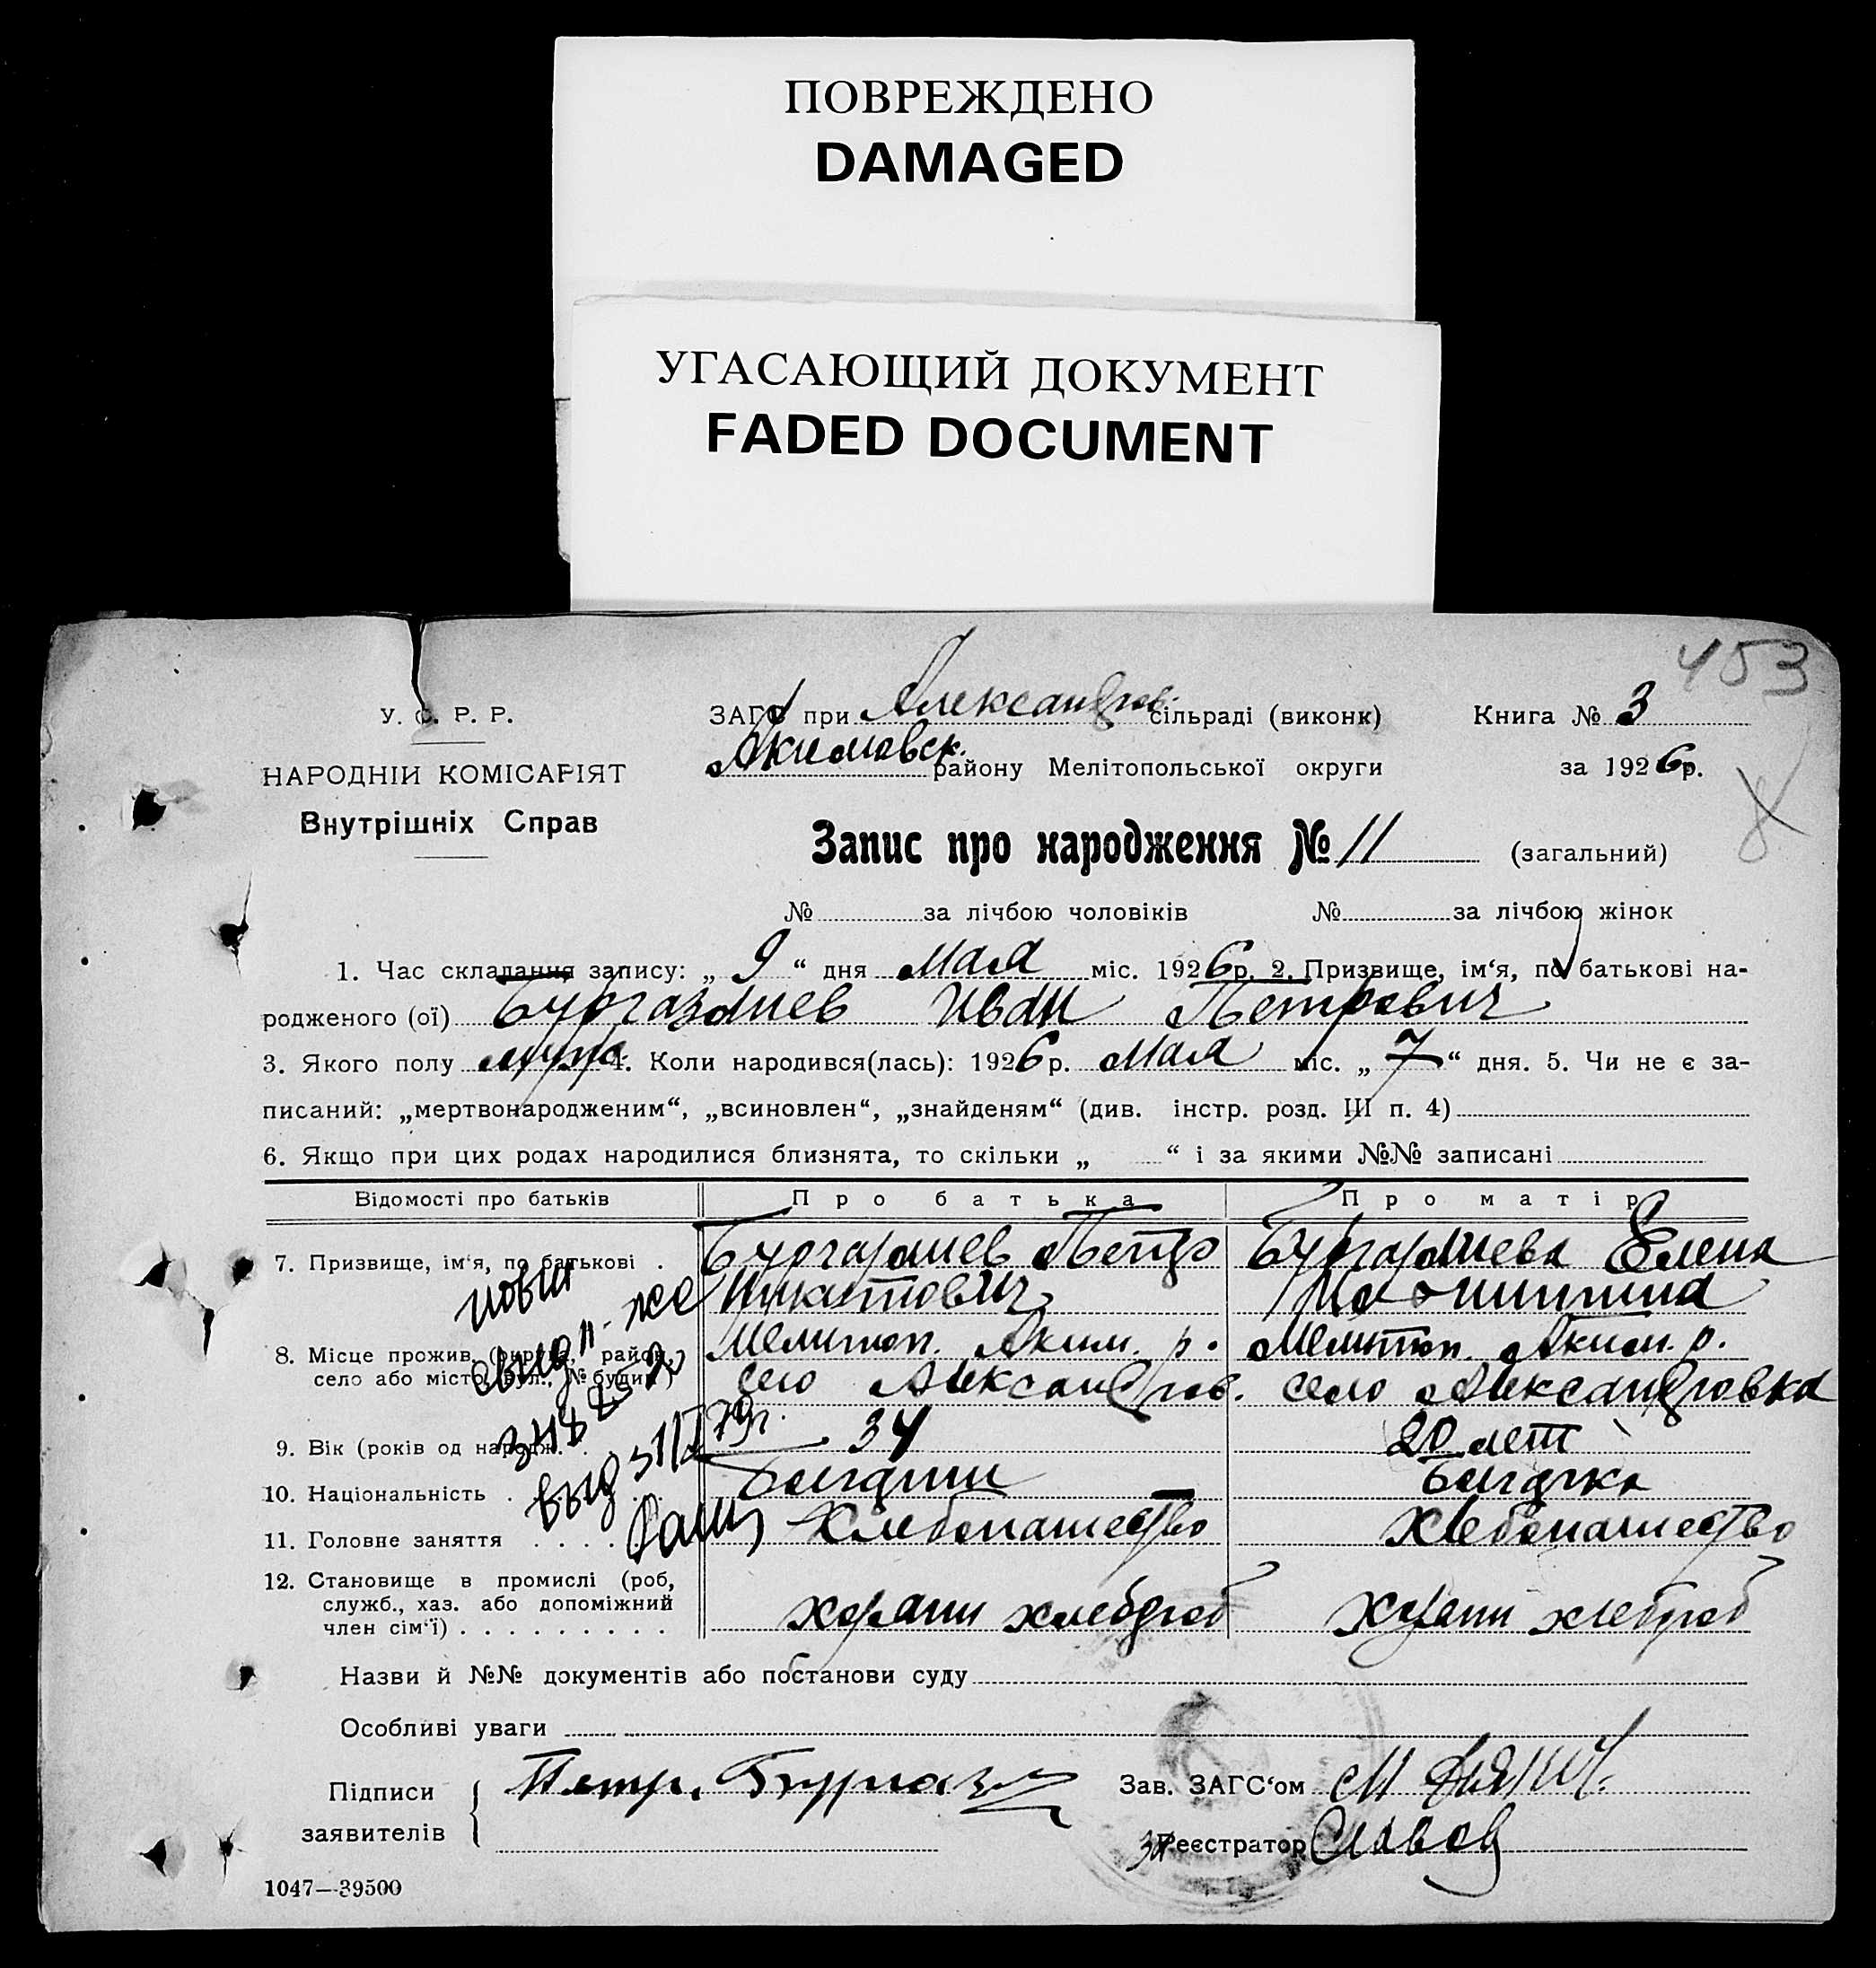 ПОВРЕЖДЕНО
DAMAGED
УГАСАЮЩИЙ ДОКУМЕНТ
FADED DOCUMENT
453
У. С. Р. Р.
ЗАГС при Александров. сільраді (виконк) Книга № 3
НАРОДНІЙ КОМІСАРІЯТ
Акимовск. району Мелітопольської округи за 1926р.
Внутрішніх Справ
8
Запис про народження № 11 (загальний)
№ за лічбою чоловіків № за лічбою жінок
1. Час складання запису: „ 9 “ дня Мая міс. 1926р. 2. Призвище, ім‘я, по батькові на-
родженого (ої) Бургазлиев Иван Петрович
3. Якого полу муж. 4. Коли народився(лась): 1926р. Мая міс. „ 7 “ дня. 5. Чи не є за-
писаний: „мертвонародженим“, „всиновлен“, „знайденям“ (див. інстр. розд. III п. 4)
6. Якщо при цих родах народилися близнята, то скільки „ “ і за якими №№ записані
Відомості про батьків Про батька Про матір
7. Призвище, ім‘я, по батькові . Бургазлиев Петр Бургазлиева Елена
8. Місце прожив. (округа, район, Мелитоп. Аким. р. Мелитоп. Аким. р.
село або місто, вул., № будин.) село Александров. село Александровка
9. Вік (років од народж. . 34 20 лет
10. Національність . Болгарин Болгарка
11. Головне заняття . . . . Хлебопашество Хлебопашество
12. Становище в промислі (роб,
служб., хаз. або допоміжний
член сім‘ї) . . . . . . . . . хозяин хлебороб хозяин хлебороб
Назви й №№ документів або постанови суду
Особливі уваги
Підписи Петр. Зав. ЗАГС‘ом
заявителів
за Реєстратор
1047—39500